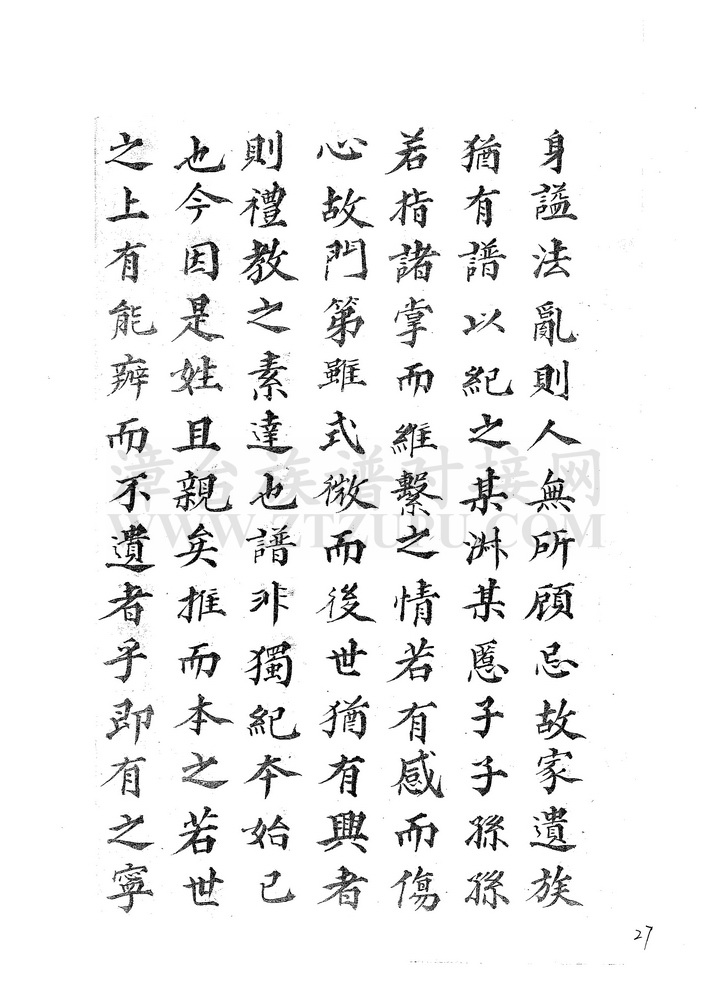 身謚法亂則人無所顧忌故家遺族
猶有譜以紀之某淋某慝子子孫孫
若指諸掌而維繫之情若有感而傷
心故門第雖式微而後世猶有興者
則禮教之素達也譜非獨紀夲始已
也今因是姓且親矣推而本之若世
之上有能辨而不遺者乎即有之寧
漳台族谱对接网
WWW.ZTZUPU.COM
27